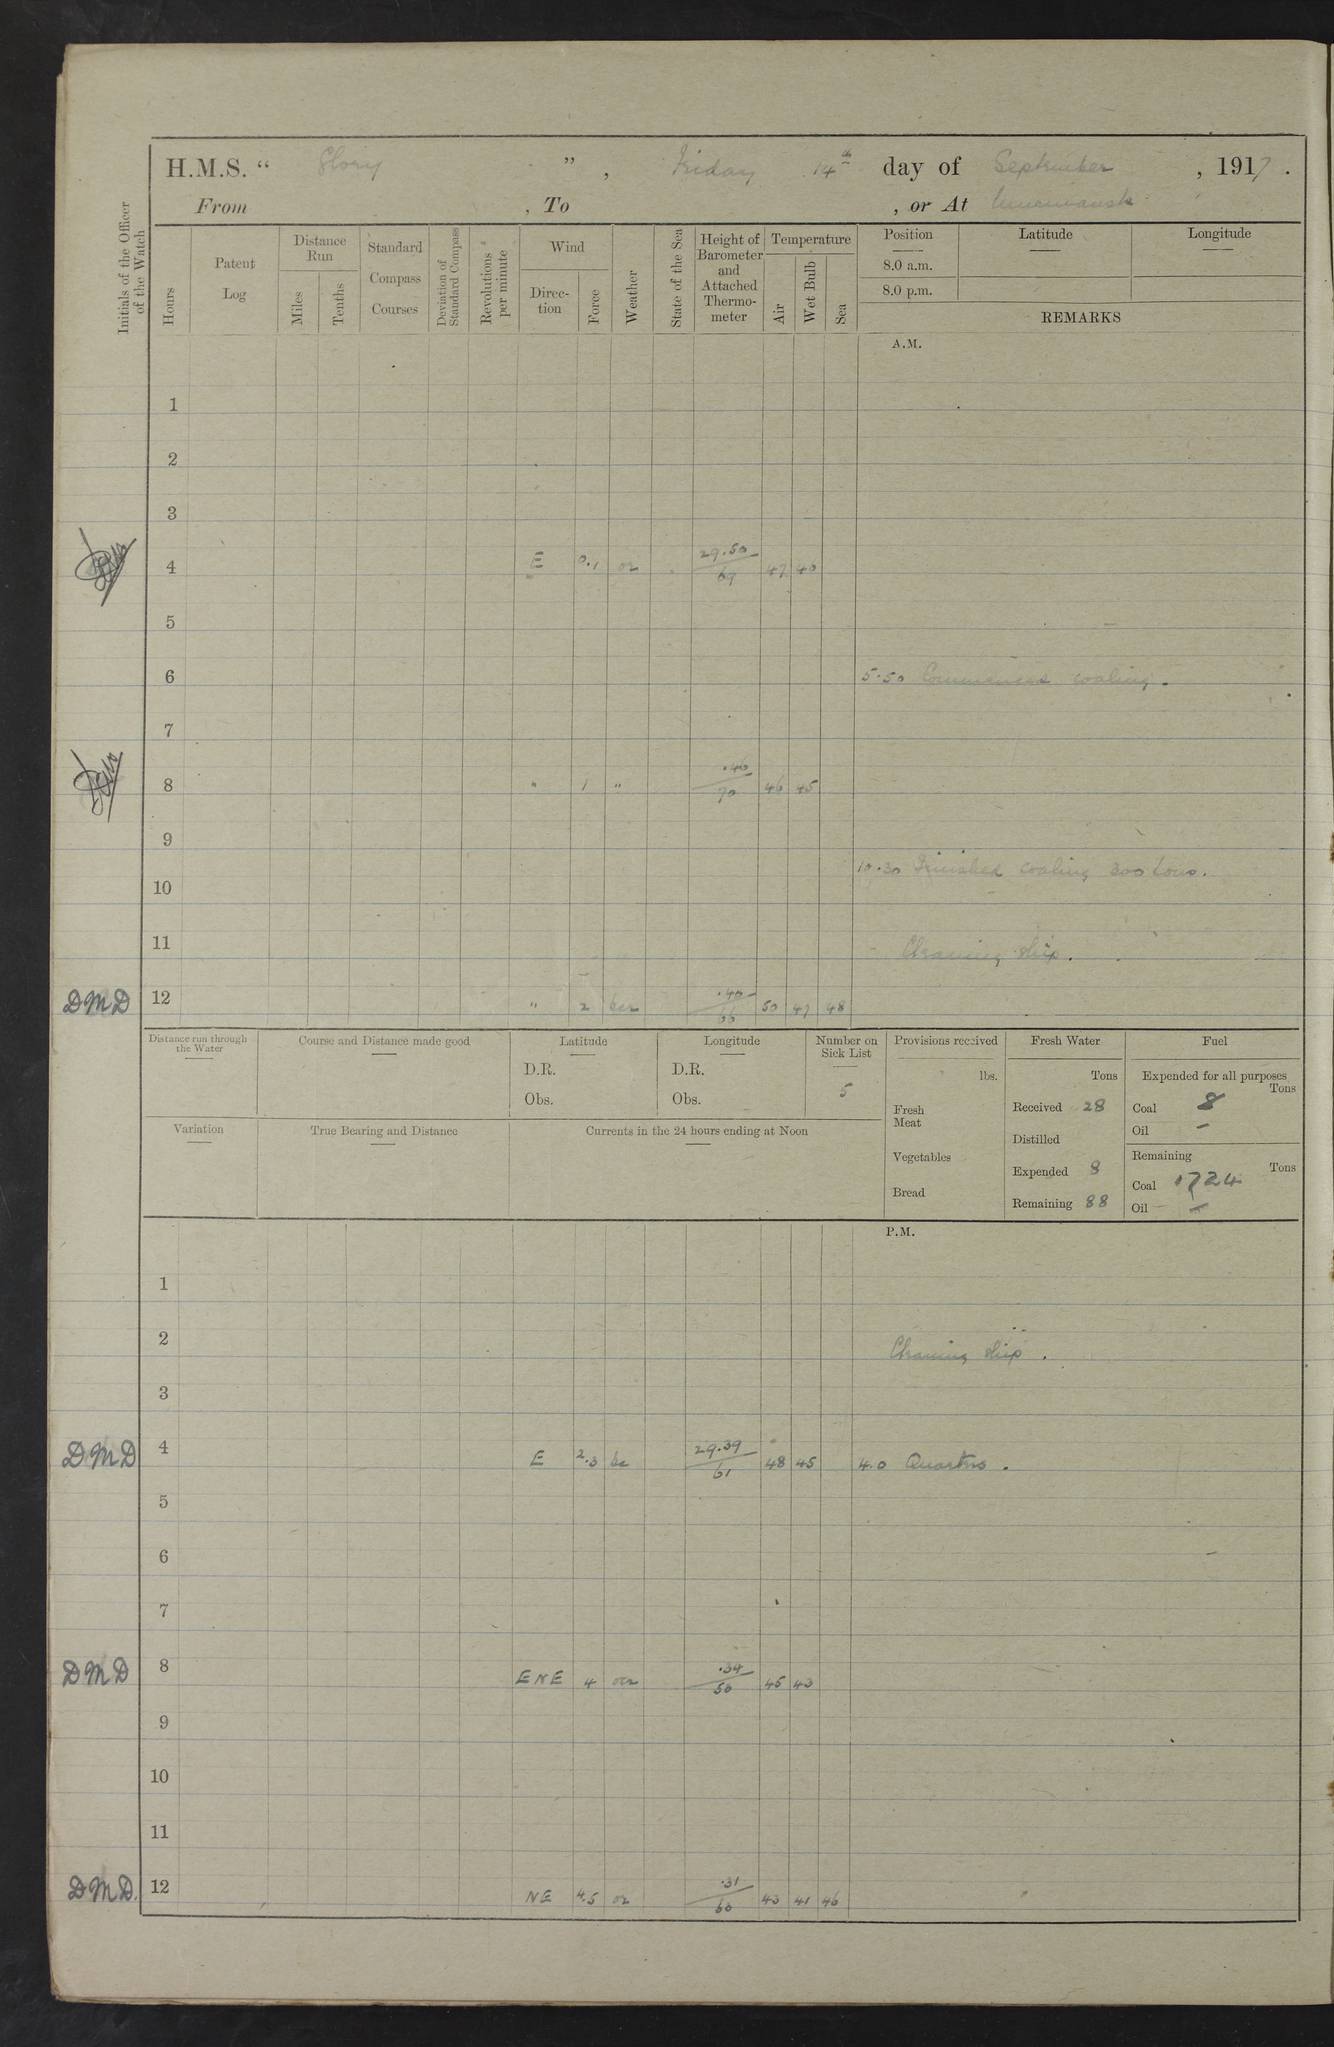 H.M.S. “ Glory ” , Friday 14th day of September , 1917 .
From , To , or At Murmansk
Initials of the Officer of the Watch
Hours
Patent Log
Distance Run
Miles
Tenths
Standard Compass Courses
Deviation of Standard Compass
Revolutions per minute
Wind
Direc- tion
Force
Weather
State of the Sea
Height of Barometer and Attached Thermo- meter
Temperature
Air
Wet Bulb
Sea
Position
8.0 a.m.
8.0 p.m.
Latitude
Longitude
REMARKS
A.M.
1
2
3
4 E 0.1 29.50 69 47 40
5
6 5.50 Commenced coaling.
7
8 " 1 " .40 70 46 45
9
10.30 Finished coaling 300 tons.
10
11 Cleaning ship.
DMD 12 " 2 .40 66 50 47 48
Distance run through the Water
Course and Distance made good
Latitude
D.R.
Obs.
Longitude
D.R.
Obs.
Number on Sick List
5
Provisions received
lbs.
Fresh Meat
Vegetables
Bread
Fresh Water
Tons
Received 28
Distilled
Expended 8
Remaining 88
Fuel
Expended for all purposes
Tons
Coal 8
Oil –
Remaining
Tons
Coal 1724
Oil –
Variation
True Bearing and Distance
Currents in the 24 hours ending at Noon
P.M.
1
2 Cleaning ship.
3
DMD 4 E 2.3 bc 29.39 61 48 45 4.0 Quarters.
5
6
7
DMD 8 ENE 4 .34 50 45 43
9
10
11
DMD. 12 NE 4.5 .31 60 43 41 46